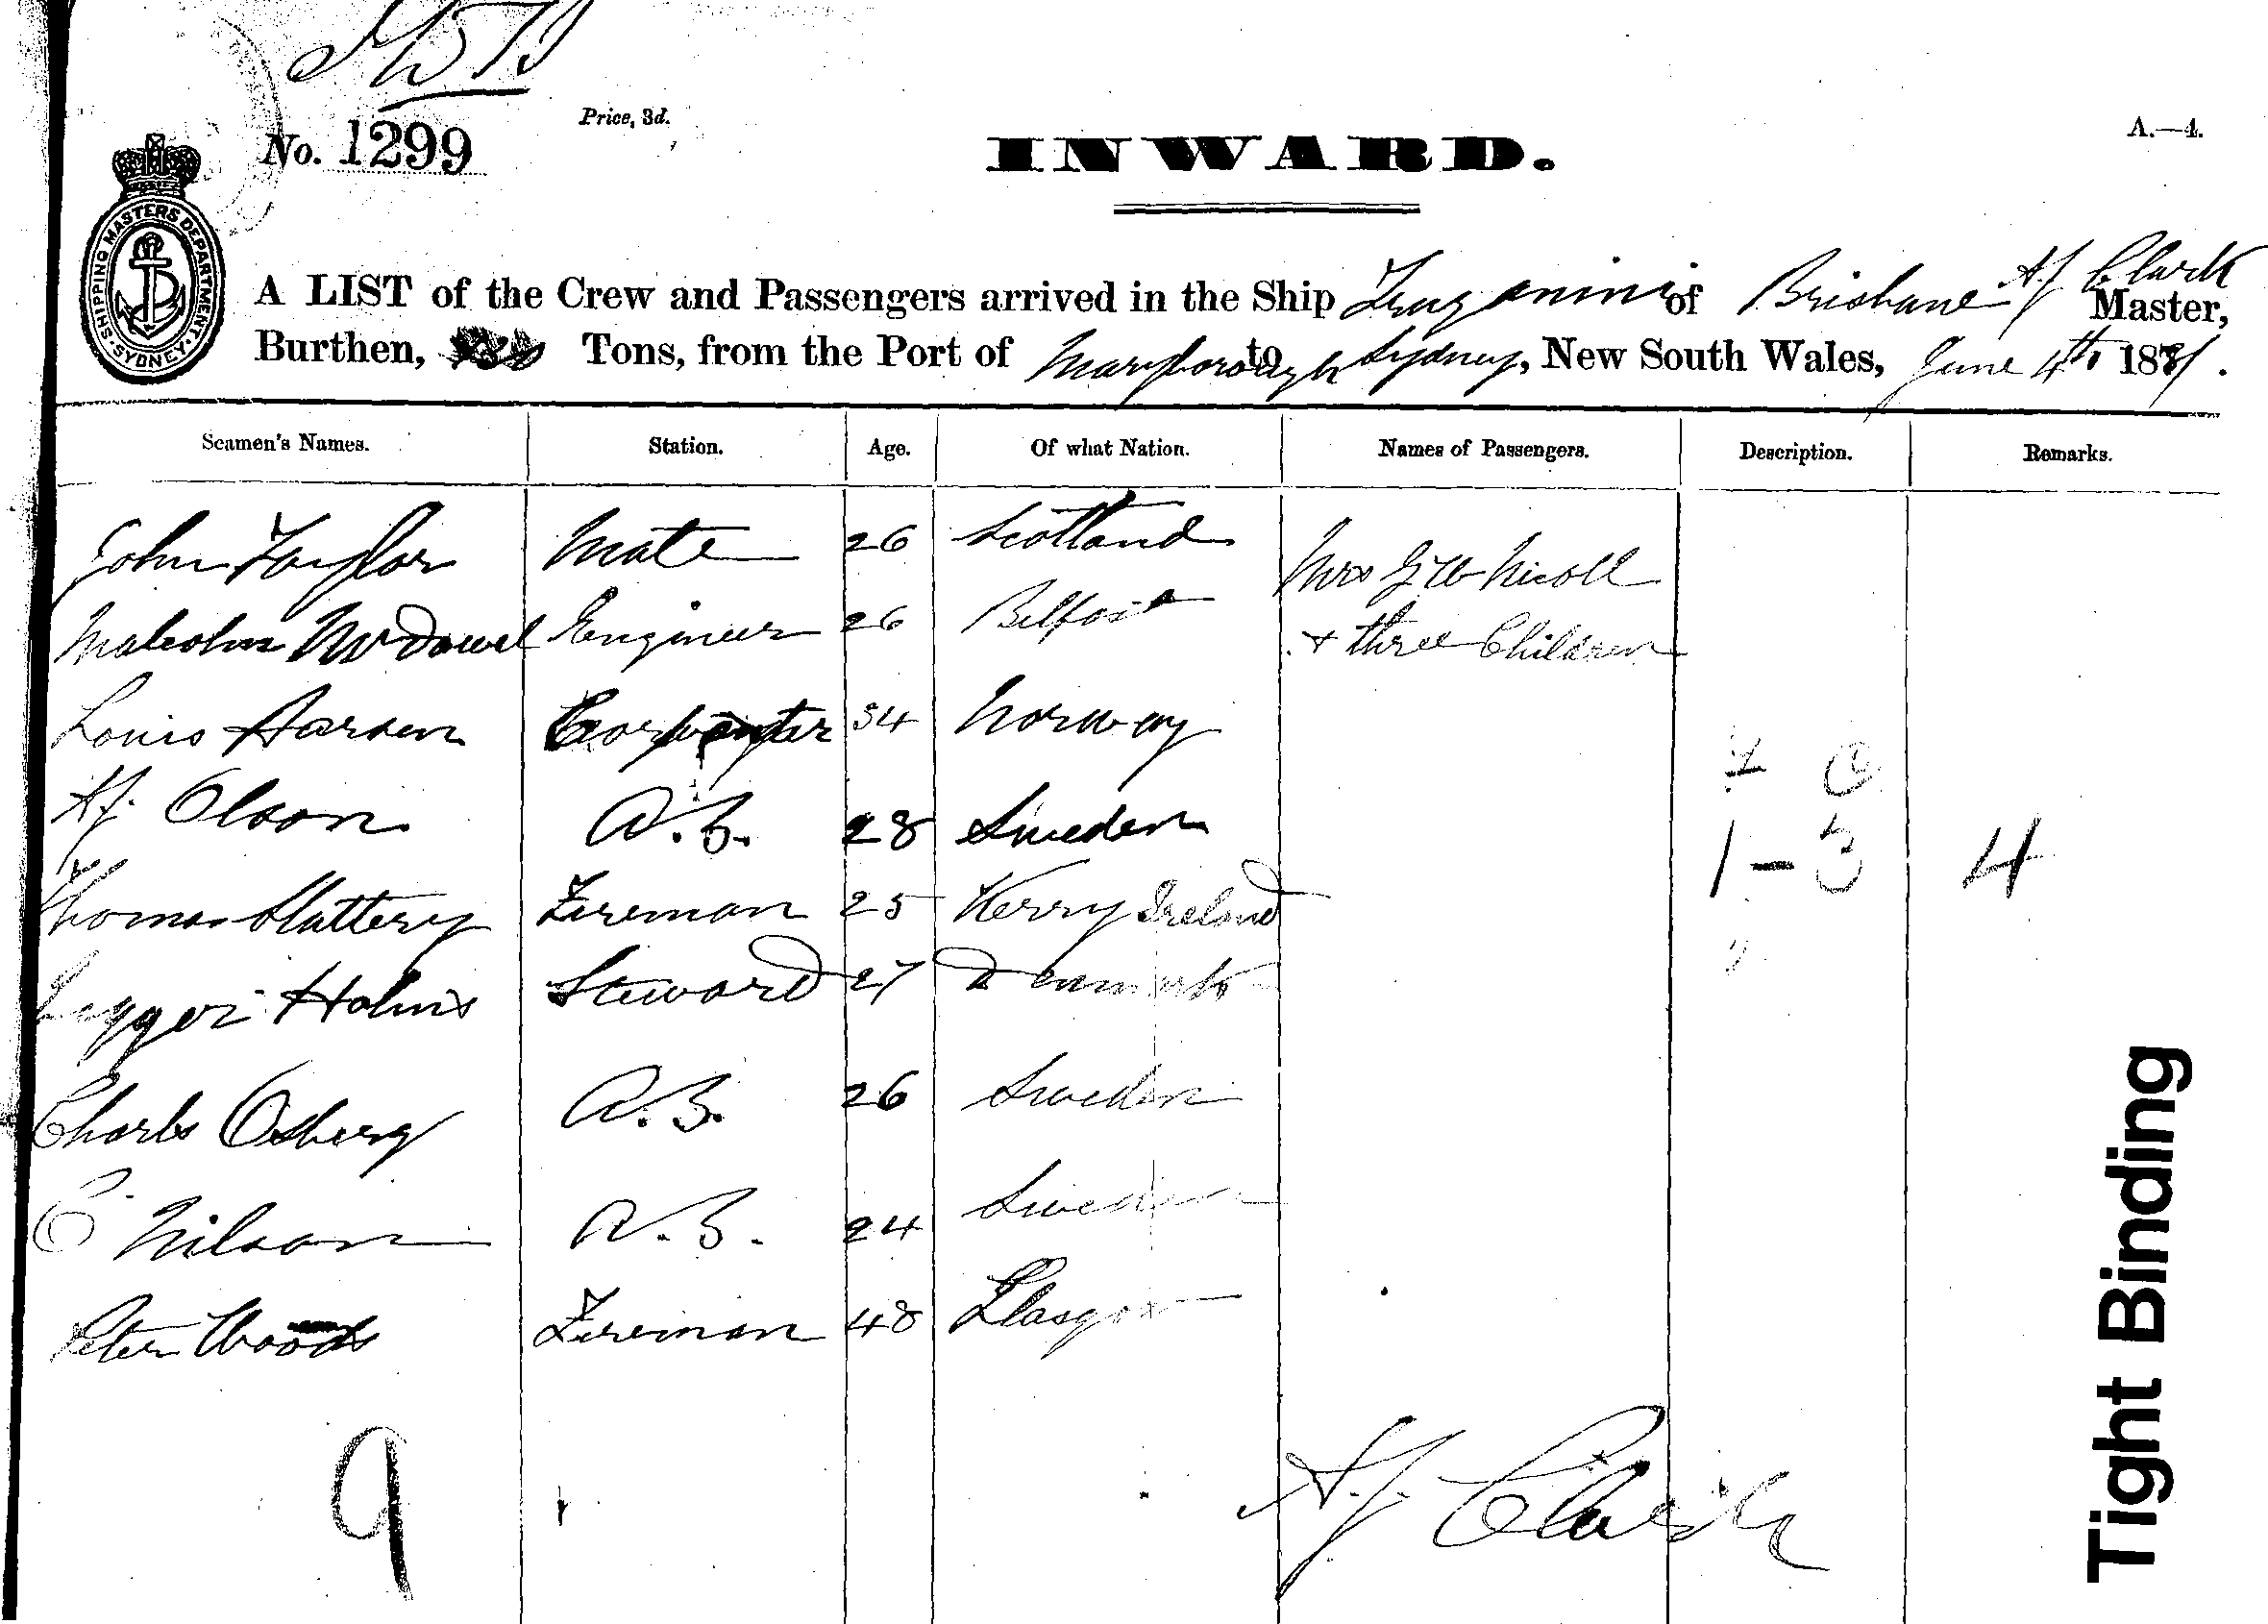 No. 1299
Price, 3d.
INWARD.
A.—4.
SHIPPING MASTERS DEPARTMENT SYDNEY
A LIST of the Crew and Passengers arrived in the Ship of Brisbane A.J. Clark Master,
Burthen, Tons, from the Port of Maryborough to Sydney, New South Wales, June 4th 1881.
Seamen's Names. Station. Age. Of what Nation. Names of Passengers. Description. Remarks.
John Taylor Mate 26 Scotland Mrs G W Nicoll
Malcolm McDowel Engineer 26 Belfast + three Children
Louis Carpenter 34 Norway
A.J. Olson A.B. 28 Sweden
Thomas Slattery Fireman 25 Kerry Ireland 1 - 3 4
Holms Steward 27 Denmark
Charls Osberg A.B. 26 Sweden
Nilson A.B. 24 Sweden
Peter Woods Fireman 48 Glasgow
9
A.J. Clark
Tight Binding